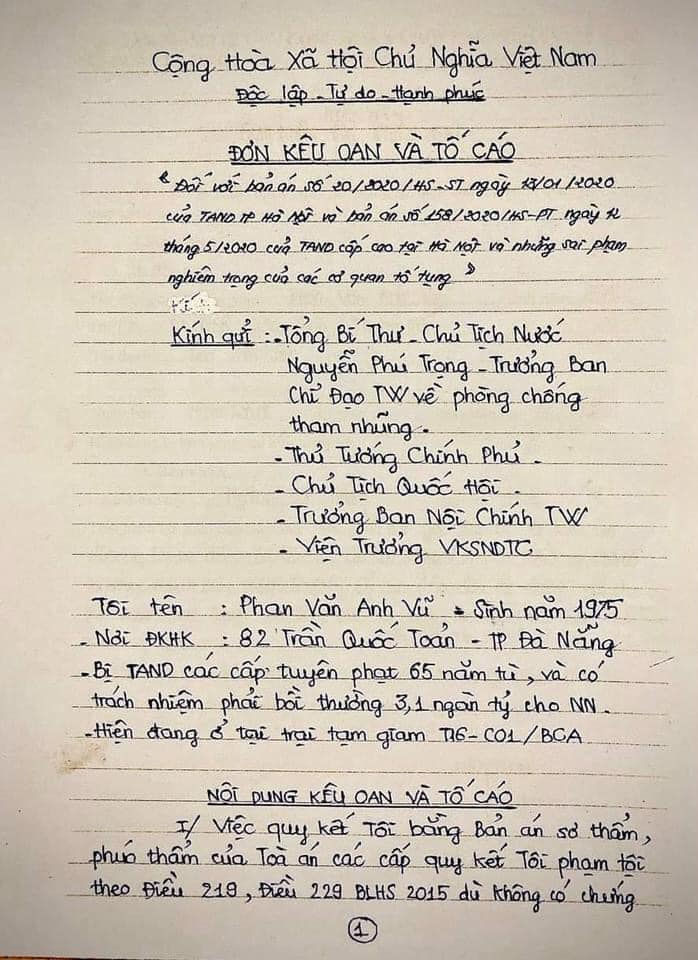 Cộng Hoà Xã Hội Chủ Nghĩa Việt Nam
Độc lập - Tự do - Hạnh phúc
ĐƠN KÊU OAN VÀ TỐ CÁO
"Đối với bản án số 20/2020/HS-ST ngày 13/01/2020
của TAND TP Hà Nội và bản án số 158/2020/HS-PT ngày 12
tháng 5/2020 của TAND cấp cao tại Hà Nội và những sai phạm
nghiêm trọng của các cơ quan tố tụng"
Kính gửi : - Tổng Bí Thư - Chủ Tịch Nước
Nguyễn Phú Trọng - Trưởng Ban
Chỉ Đạo TW về phòng chống
tham nhũng.
- Thủ Tướng Chính Phủ.
- Chủ Tịch Quốc Hội.
- Trưởng Ban Nội Chính TW
- Viện Trưởng VKSNDTC
Tôi tên : Phan Văn Anh Vũ - Sinh năm 1975
- Nơi ĐKHK : 82 Trần Quốc Toản - TP Đà Nẵng
- Bị TAND các cấp tuyên phạt 65 năm tù, và có
trách nhiệm phải bồi thường 3,1 ngàn tỷ cho NN.
- Hiện đang ở tại trại tạm giam T16 - C01/BCA
NỘI DUNG KÊU OAN VÀ TỐ CÁO
I/ Việc quy kết Tôi bằng Bản án sơ thẩm,
phúc thẩm của Toà án các cấp quy kết Tôi phạm tội
theo Điều 219, Điều 229 BLHS 2015 dù không có chứng
1